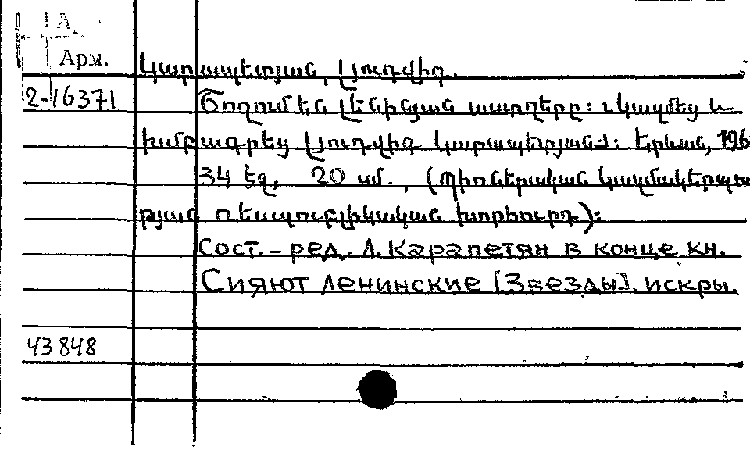 А.
Арм.
Կարապետյան, Լյուդվիգ.
2-16371 Շողում են լենինյան աստղերը: Կազմեց և
խմբագրեց Լյուդվիգ Կարապետյանը: Երևան, 196
34 էջ, 20 սմ., (Պիոներական կազմակերպու
թյան ռեսպուբլիկական խորհուրդ):
Сост.-ред. Л. Карапетян в конце кн.
Сияют ленинские [Звезды]. искры.
43848